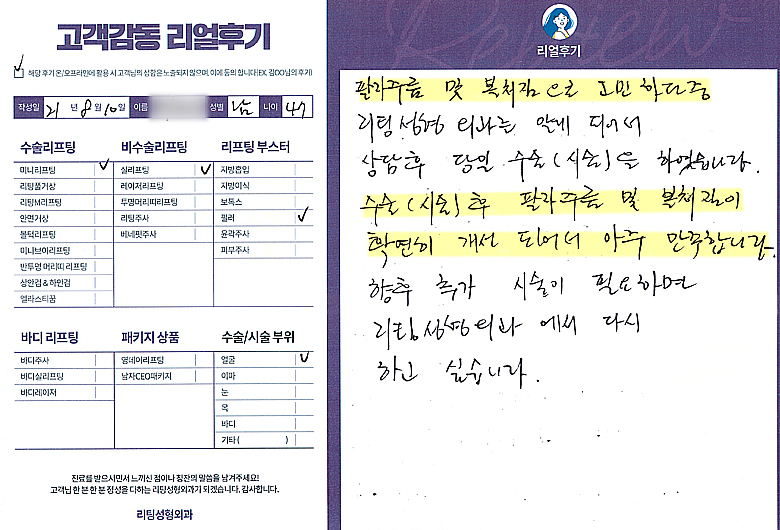 고객감동 리얼후기
해당 후기 온/오프라인에 활용 시 고객님의 상황은 노출되지 않으며, 이에 동의 합니다(EX. 김OO님의 후기)
작성일 21 년 8 월 10 일 이름 성별 남 나이 47
수술리프팅 비수술리프팅 리프팅 부스터
미니리프팅 실리프팅 지방흡입
리팅풀거상 레이저리프팅 지방이식
리팅M리프팅 투명머리띠리프팅 보톡스
안면거상 리팅주사 필러
볼턱리프팅 베네핏주사 윤곽주사
미니브이리프팅 피부주사
반투명 머리띠 리프팅
상안검 & 하안검
엘라스티꿈
바디 리프팅 패키지 상품 수술/시술 부위
바디주사 영데이리프팅 얼굴
바디실리프팅 남자CEO패키지 이마
바디레이저 눈
목
바디
기타 ( )
진료를 받으시면서 느끼신 점이나 칭찬의 말씀을 남겨주세요!
고객님 한 분 한 분 정성을 다하는 리팅성형외과가 되겠습니다. 감사합니다.
리팅성형외과
Review
리얼후기
팔자주름 및 볼처짐으로 고민하다중
리팅성형외과는 알게 되어서
상담후 당일 수술(시술)을 하였습니다.
수술(시술)후 팔자주름 및 볼처짐이
확연히 개선 되어서 아주 만족합니다.
향후 추가 시술이 필요하면
리팅성형외과 에서 다시
하고 싶습니다.